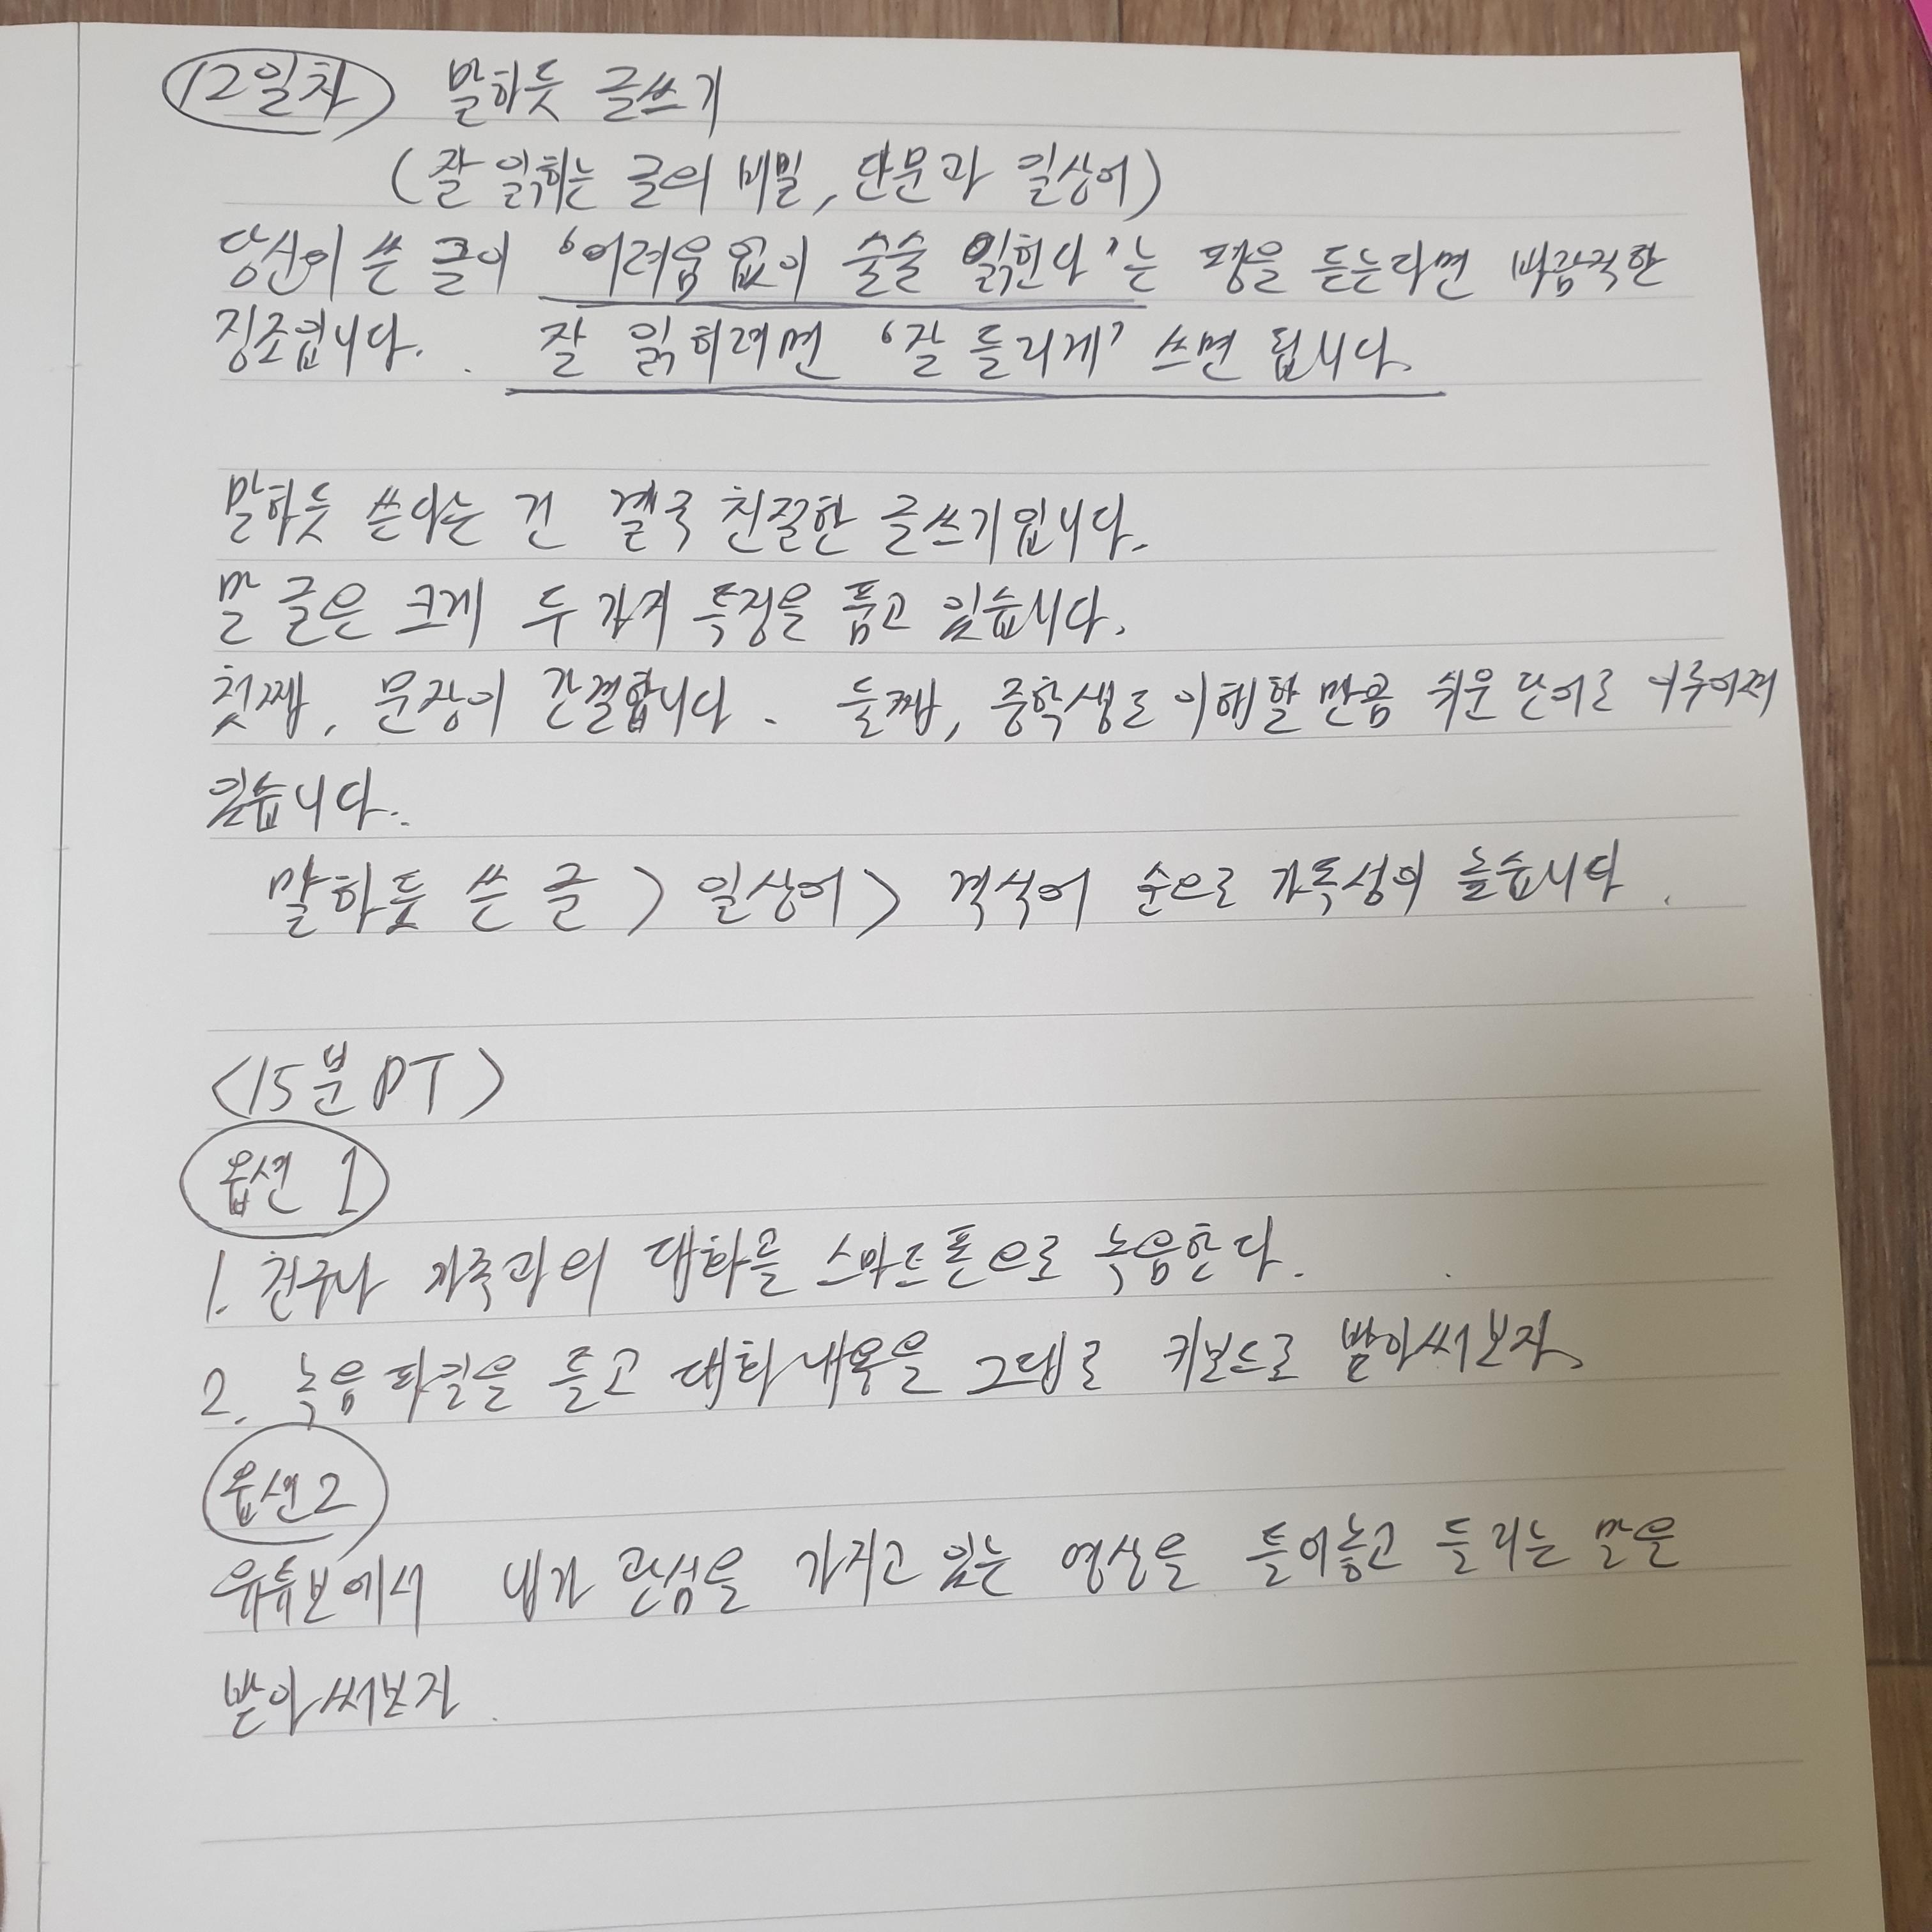 12일차 말하듯 글쓰기
(잘 읽히는 글의 비밀, 단문과 일상어)
당신이 쓴 글이 '어려움 없이 술술 읽힌다'는 평을 듣는다면 바람직한
징조입니다. 잘 읽히려면 '잘 들리게' 쓰면 됩니다.
말하듯 쓴다는 건 결국 친절한 글쓰기입니다.
말 글은 크게 두 가지 특징을 품고 있습니다.
첫째, 문장이 간결합니다. 둘째, 중학생도 이해할 만큼 쉬운 단어로 이루어져
있습니다.
말하듯 쓴 글 > 일상어 > 격식어 순으로 가독성이 높습니다.
<15분 PT>
옵션 1
1. 친구나 가족과의 대화를 스마트폰으로 녹음한다.
2. 녹음파일을 듣고 대화내용을 그대로 키보드로 받아써보자.
옵션2
유튜브에서 내가 관심을 가지고 있는 영상을 틀어놓고 들리는 말을
받아써보자.